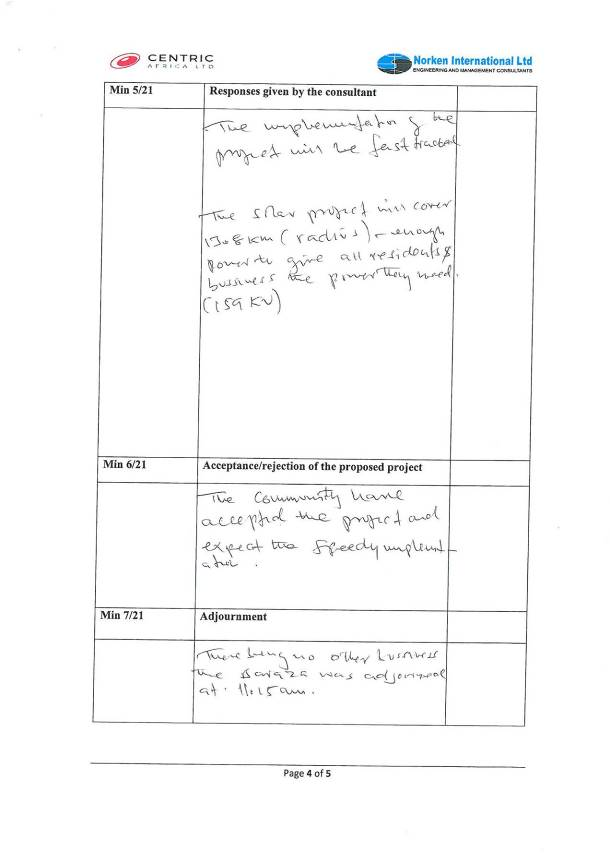 CENTRIC
AFRICA LTD
Norken International Ltd
ENGINEERING AND MANAGEMENT CONSULTANTS
Min 5/21 Responses given by the consultant
The implementation of the
project will be fast tracked
The solar project will cover
13.8 km (radius) - enough
power to give all residents &
bussiness the power they need.
(159 KV)
Min 6/21 Acceptance/rejection of the proposed project
The Community have
accepted the project and
expect the speedy implement-
ation.
Min 7/21 Adjournment
There being no other business
the Baraza was adjourned
at 11.15am.
Page 4 of 5